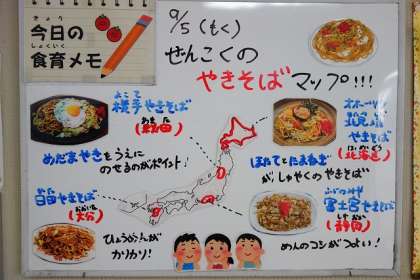 きょう
今日の
しょくいく
食育メモ
9/5(もく)
ぜんこくの
やきそばマップ!!!
よこて
横手やきそば
あきた
(秋田)
めだまやきをうえに
のせるのがポイント!
オホーツク
北見塩
やきそば
ほっかいどう
(北海道)
ほたてとたまねぎ
がしゅやくのやきそば
ひた
日田やきそば
おおいた
(大分)
ひょうめんが
カリカリ!
ふじのみや
富士宮やきそば
しずおか
(静岡)
めんのコシがつよい!